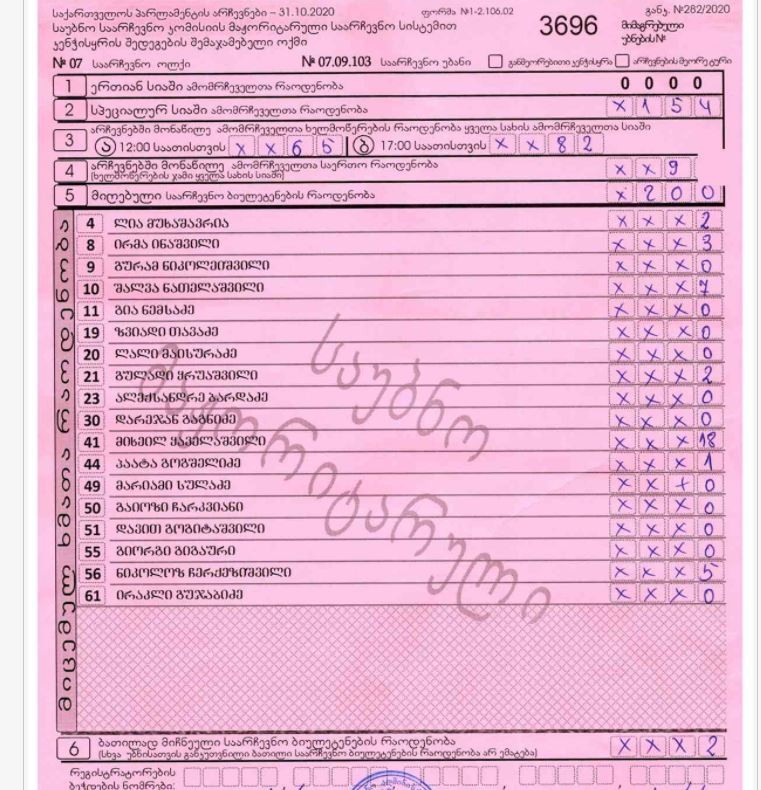 საქართველოს პარლამენტის არჩევნები – 31.10.2020 ფორმა №1-2.106.02 3696 განკ. №282/2020
საუბნო საარჩევნო კომისიის მაჟორიტარული საარჩევნო სისტემით მიმაგრებული
კენჭისყრის შედეგების შემაჯამებელი ოქმი უბნები №
№ 07 საარჩევნო ოლქი № 07.09.103 საარჩევნო უბანი განმეორებითი კენჭისყრა არჩევნების მეორე ტური
1 ერთიან სიაში ამომრჩეველთა რაოდენობა 0 0 0 0
2 სპეციალურ სიაში ამომრჩეველთა რაოდენობა X 1 5 4
3 არჩევნებში მონაწილე ამომრჩეველთა ხელმოწერების რაოდენობა ყველა სახის ამომრჩეველთა სიაში
ა 12:00 საათისთვის X X 6 5 ბ 17:00 საათისთვის X X 8 2
4 არჩევნებში მონაწილე ამომრჩეველთა საერთო რაოდენობა X X 9
(ხელმოწერების ჯამი ყველა სახის სიაში)
5 მიღებული საარჩევნო ბიულეტენების რაოდენობა X 2 0 0
მიცემულ ხმათა რაოდენობა
4 ლია მუხაშავრია X X X 2
8 ირმა ინაშვილი X X X 3
9 გურამ ნიკოლეიშვილი X X X 0
10 შალვა ნათელაშვილი X X X 7
11 გია ნემსაძე X X X 0
19 ზვიადი თავაძე X X X 0
20 ლალი მაისურაძე X X X 0
21 გულადი ყრუაშვილი X X X 2
23 ალექსანდრე ბარდაძე X X X 0
30 დარეჯან გაგნიძე X X X 0
41 მიხეილ ყაველაშვილი X X X 18
44 პაატა გოგშელიძე X X X 1
49 მარიამი სულაძე X X X 0
50 გაიოზი ჩარკვიანი X X X 0
51 დავით გოგიტაშვილი X X X 0
55 გიორგი გიგაური X X X 0
56 ნიკოლოზ ჩერქეზიშვილი X X X 5
61 ირაკლი გუჯაბიძე X X X 0
საუბნო
მაჟორიტარული
6 ბათილად მიჩნეული საარჩევნო ბიულეტენების რაოდენობა X X X 2
(სხვა უბნისათვის განკუთვნილი ბათილი საარჩევნო ბიულეტენების რაოდენობა არ ემატება)
რეგისტრატორების
ბეჭდების ნომრები: